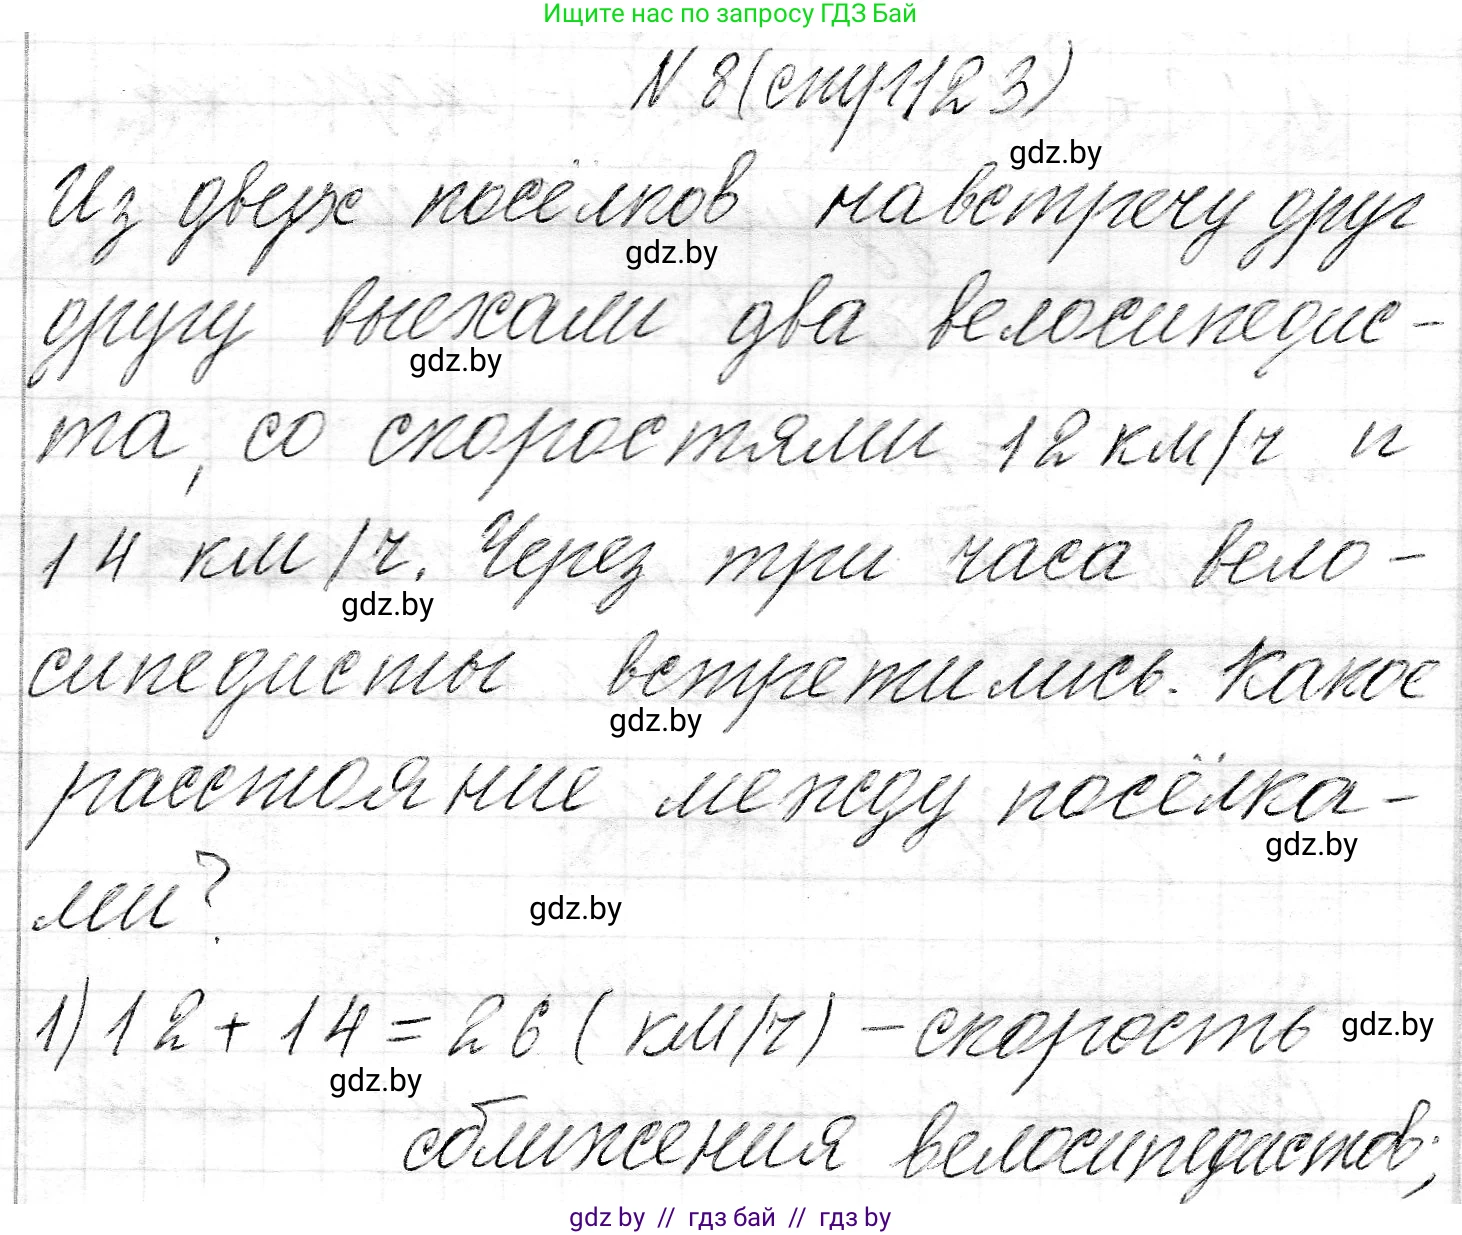 Ищите нас по запросу ГДЗ Бай
N 8 (стр 123)
gdz.by
Из двух посёлков навстречу друг
gdz.by
другу выехали два велосипедис-
gdz.by
та, со скоростями 12 км/ч и
14 км/ч. Через три часа вело-
gdz.by
сипедисты встретились. Какое
gdz.by
расстояние между посёлка-
gdz.by
ми?
gdz.by
1) 12 + 14 = 26 (км/ч) - скорость
gdz.by
gdz.by
сближения велосипедистов;
gdz by // гдз бай // гдз by